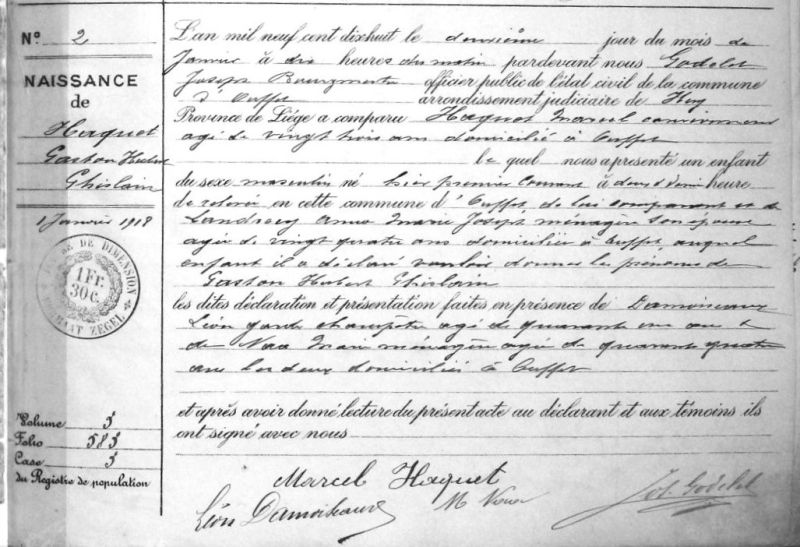 N° 2
NAISSANCE
de
Haquet
Gaston Hubert
Ghislain
1 Janvier 1918
TAXE DE DIMENSION
1 Fr.
30 c.
FORMAAT ZEGEL
Volume 5
Folio 583
Case 5
du Registre de population
L'an mil neuf cent dixhuit le deuxième jour du mois de
Janvier à dix heures du matin pardevant nous Godelet
Joseph Bourgmestre officier public de l'état civil de la commune
d'Ouffet arrondissement judiciaire de Huy
Province de Liége a comparu Haquet Marcel
agé de vingt trois ans domicilié à Ouffet
le quel nous a présenté un enfant
du sexe masculin né hier premier courant à deux et demi heure
de relevée en cette commune d'Ouffet de lui comparant et de
Landrecy Anne Marie Joseph ménagère son épouse
agée de vingt quatre ans domiciliée à Ouffet auquel
enfant il a déclaré vouloir donner les prénoms de
Gaston Hubert Ghislain
les dites déclaration et présentation faites en présence de Damoiseaux
Léon garde champêtre agé de quarante un ans &
de Marie ménagère agée de quarante quatre
ans les deux domiciliés à Ouffet
et après avoir donné lecture du présent acte au déclarant et aux témoins ils
ont signé avec nous
Marcel Haquet
Léon Damoiseaux M Jos. Godelet